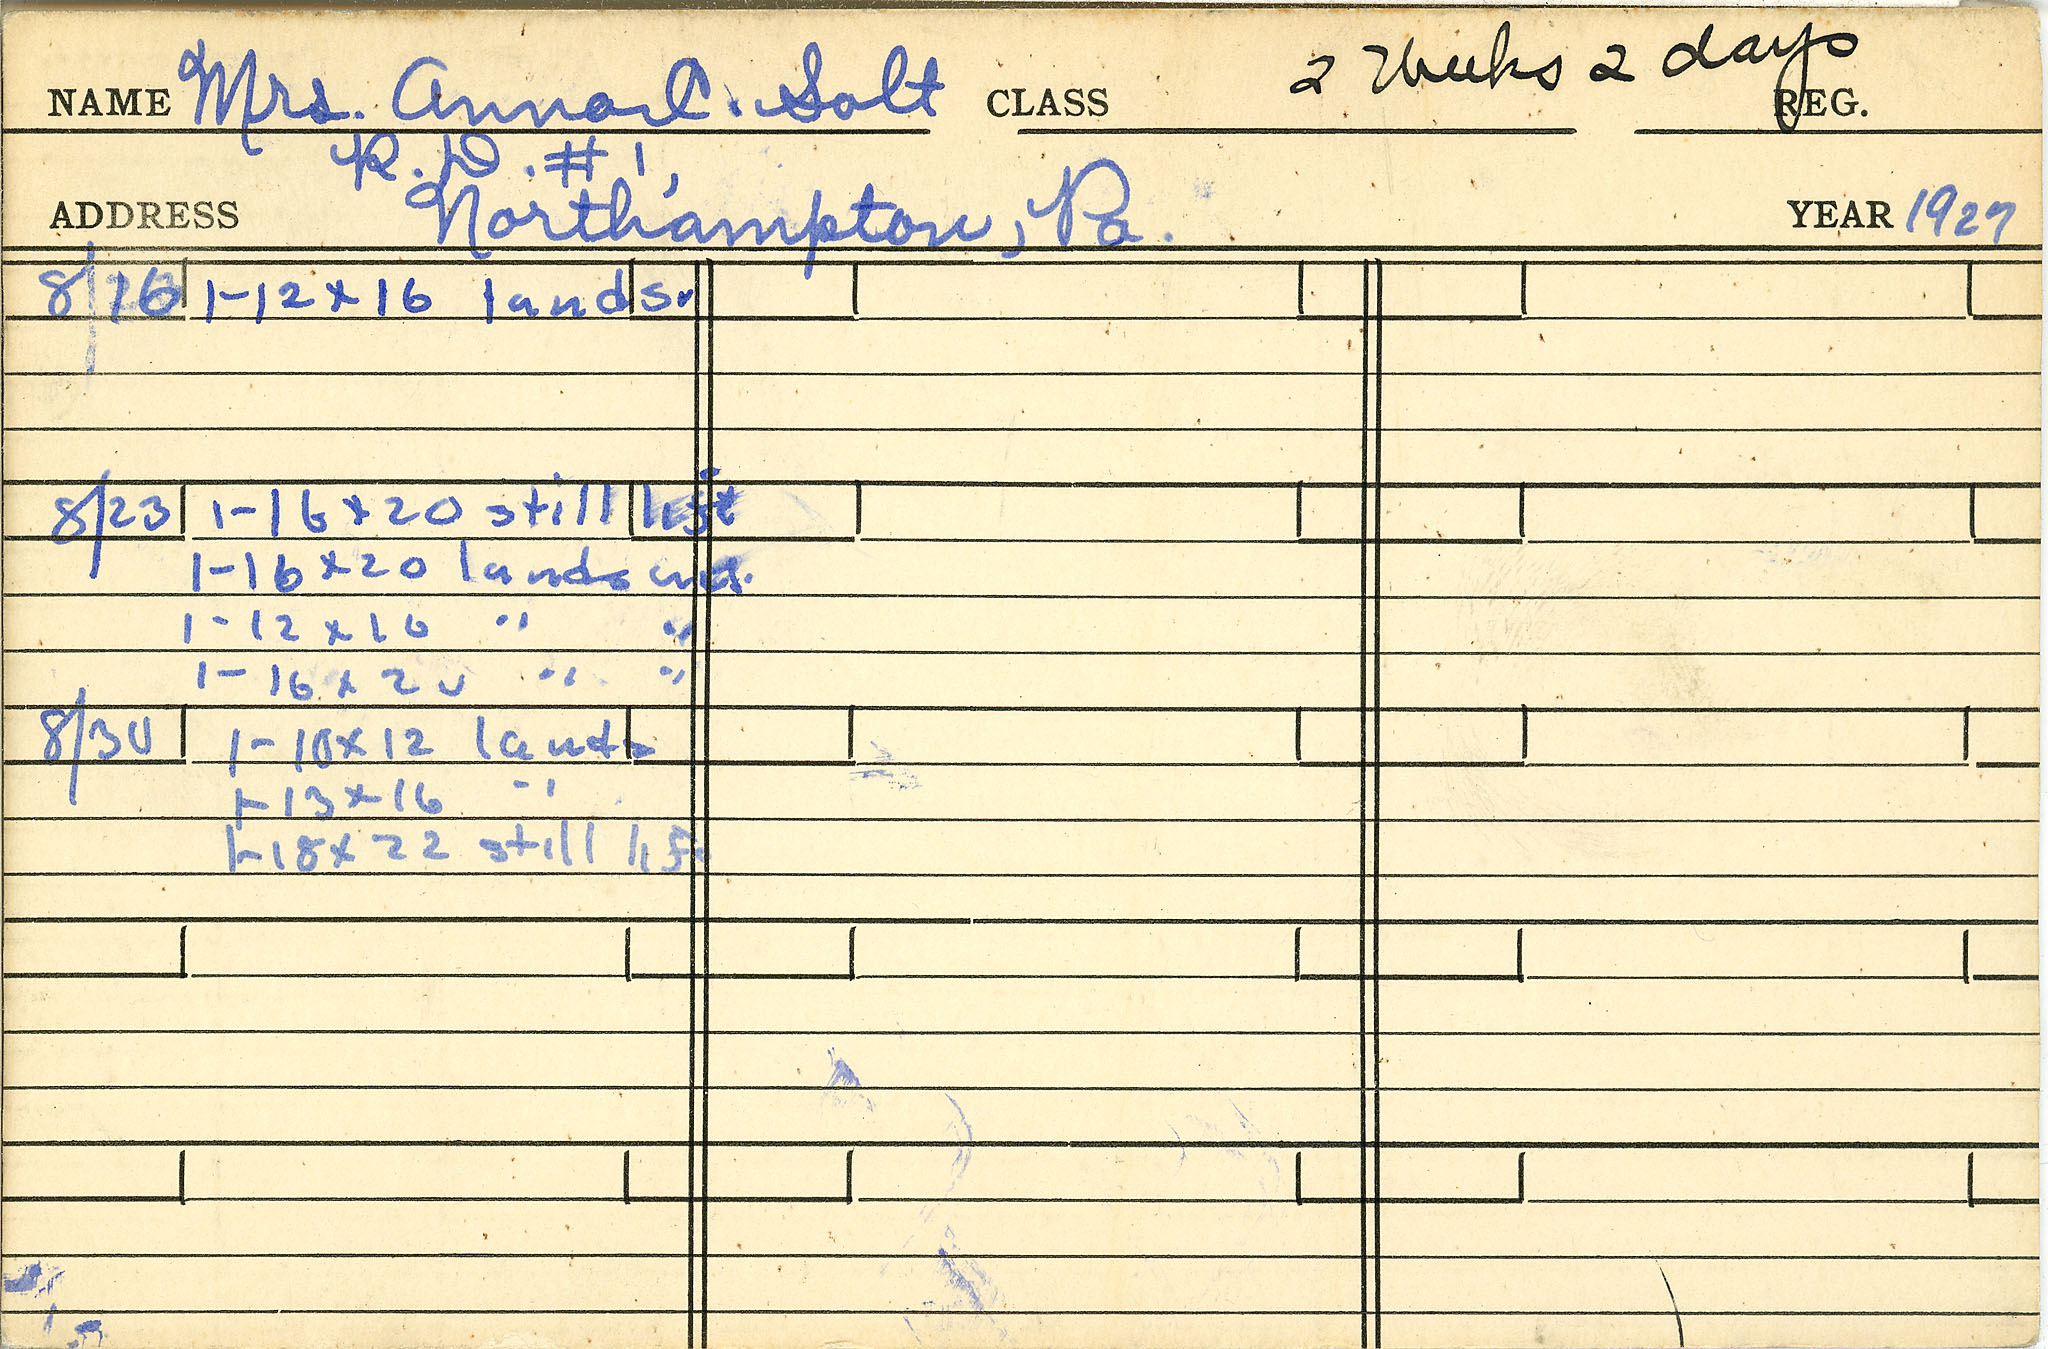 2 Weeks 2 days
NAME Mrs. Anna C. Solt CLASS REG.
R.D. #1,
ADDRESS Northampton, Pa. YEAR 1927
8/16 1-12x16 lands.
8/23 1-16x20 still life
1-16x20 landscape
1-12x16 " "
1-16x20 " "
8/30 1-10x12 lands
1-13x16 "
1-18x22 still life